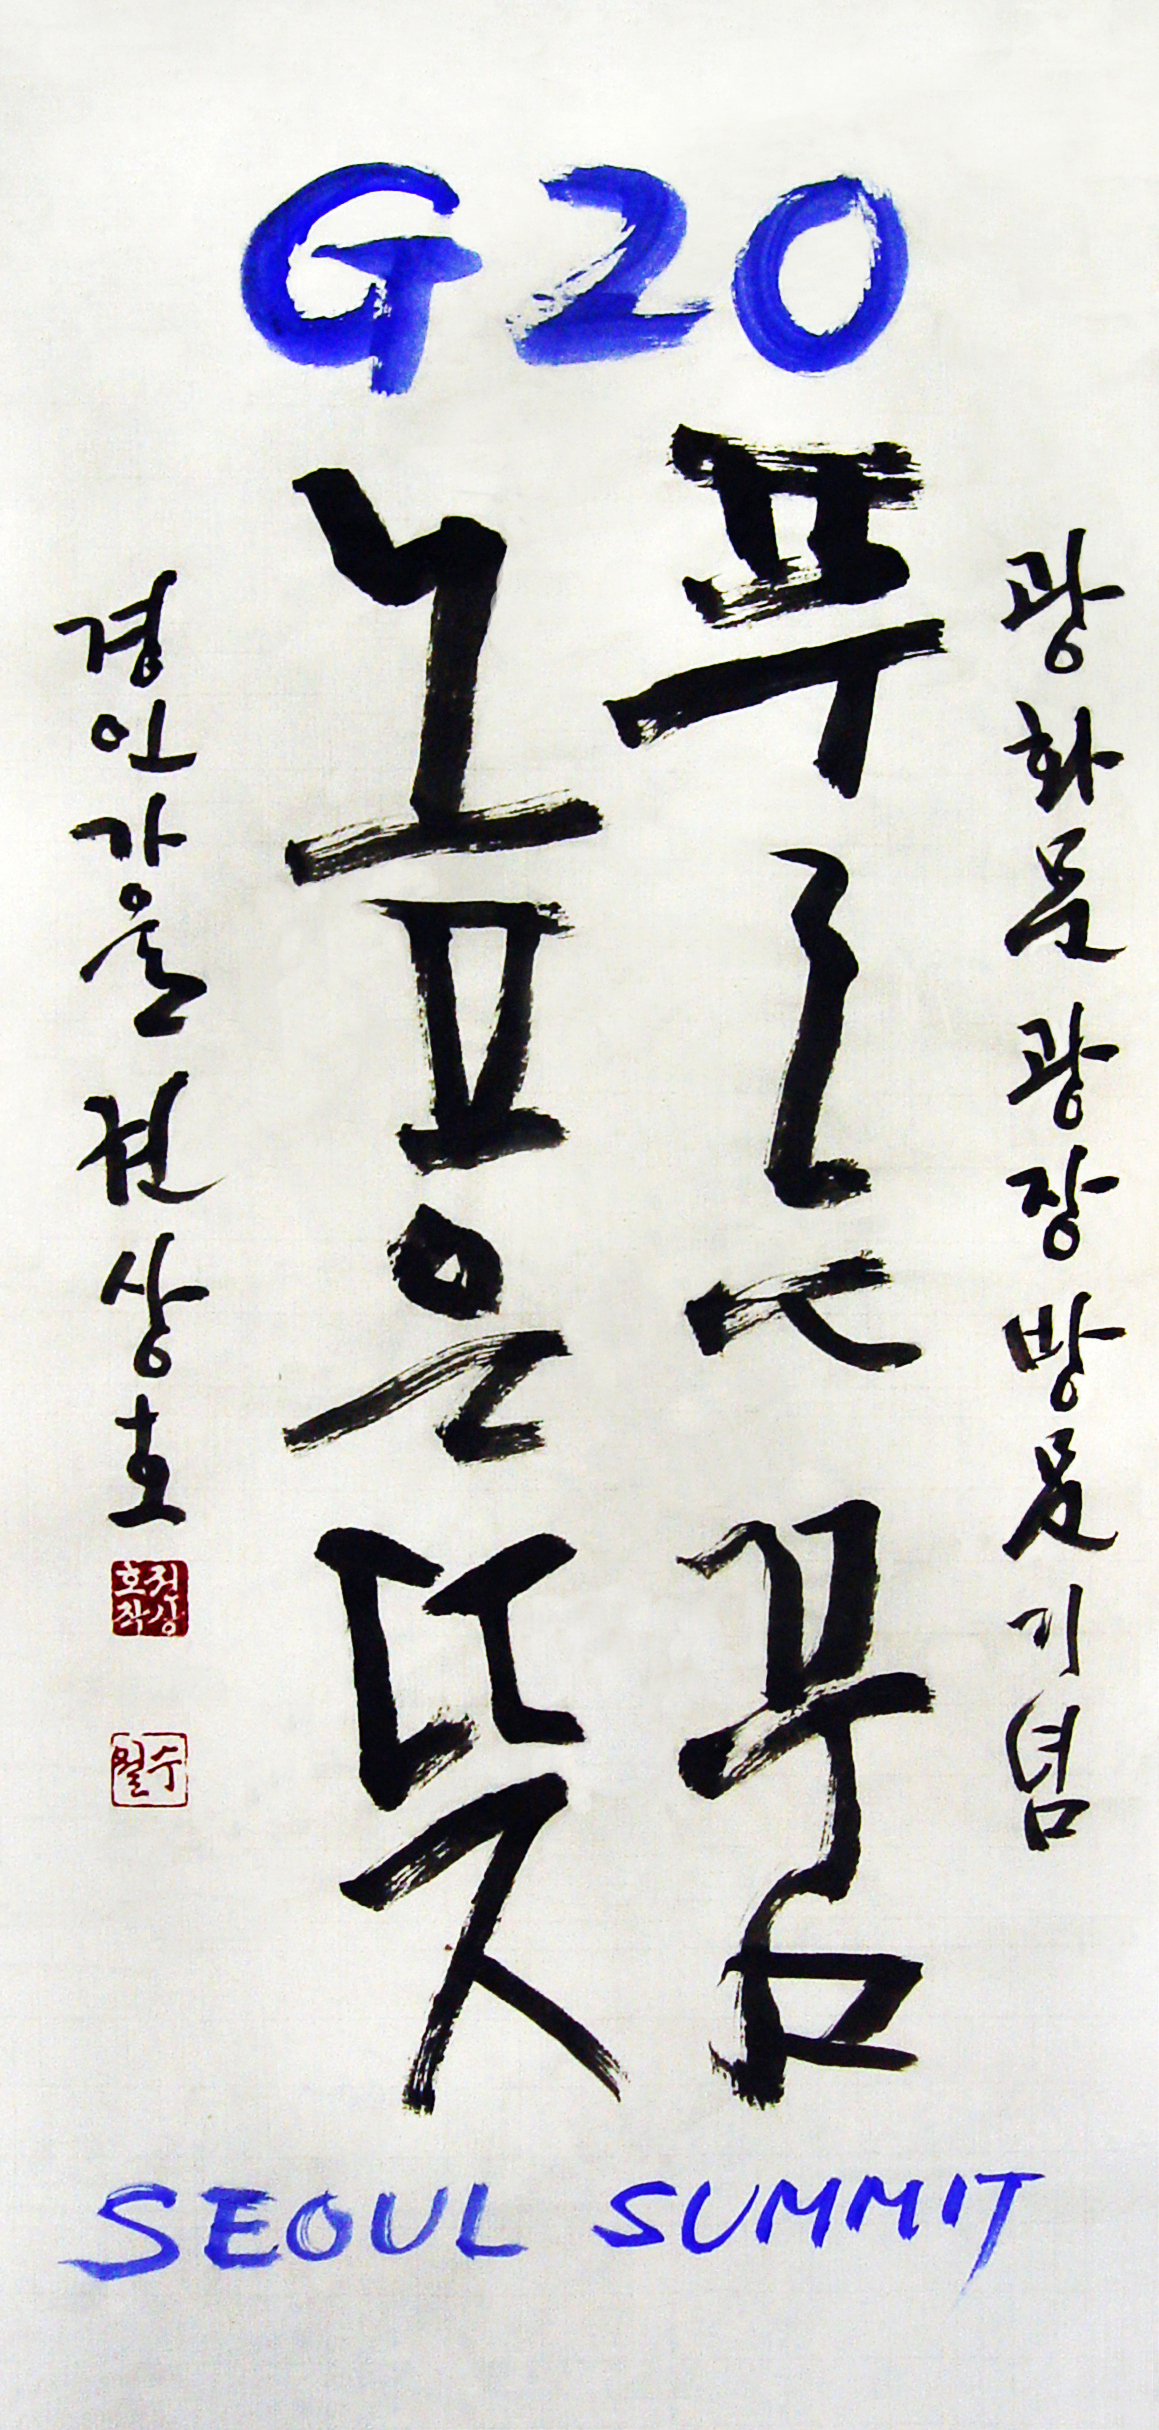 G20
광화문광장 방문 기념
푸른 꿈
높은 뜻
경인 가을 권상호
권상호작
수월
SEOUL SUMMIT